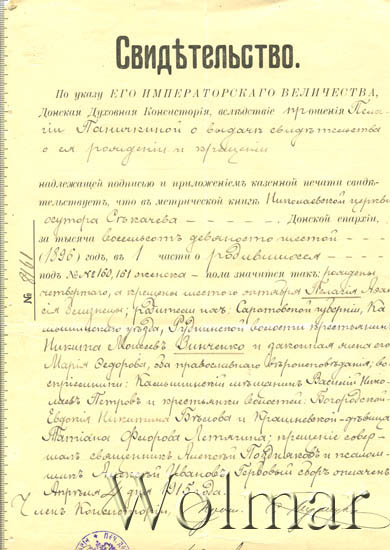 Свидѣтельство.
По указу ЕГО ИМПЕРАТОРСКАГО ВЕЛИЧЕСТВА,
Донская Духовная Консисторія, вслѣдствіе прошенія Пела-
гіи Паничкиной о выдачѣ свидѣтельства
о ея рожденіи и крещеніи
надлежащей подписью и приложеніемъ казенной печати свидѣ-
тельствуетъ, что въ метрической книгѣ Николаевской церкви
хутора Донской епархіи,
за тысяча восемьсотъ девяносто шестой
(1896) годъ, въ 1 части о родившихся
подъ № 160, 161 женска пола значится такъ: рождены
четвертаго, а крещены шестого октября Пелагія
близнецы; родители ихъ: Саратовской губерніи, Ка-
мышинскаго уѣзда, волости крестьянинъ
Никита Моисеевъ Винченко и законная жена его
Марія Ѳедорова, оба православнаго вѣроисповѣданія; во-
спріемники: Камышинскій мѣщанинъ Василій Нико-
лаевъ Петровъ и крестьянки волостей: Богородской-
Евдокія Никитина Бѣлова и дѣвица
Татіана Ѳеодорова крещеніе совер-
шалъ священникъ Алексѣй Поздняковъ и псалом-
щикъ Алексѣй Ивановъ. Гербовый сборъ оплаченъ.
Апрѣля дня 1915 года.
Членъ Консисторіи,
№
Wolmar